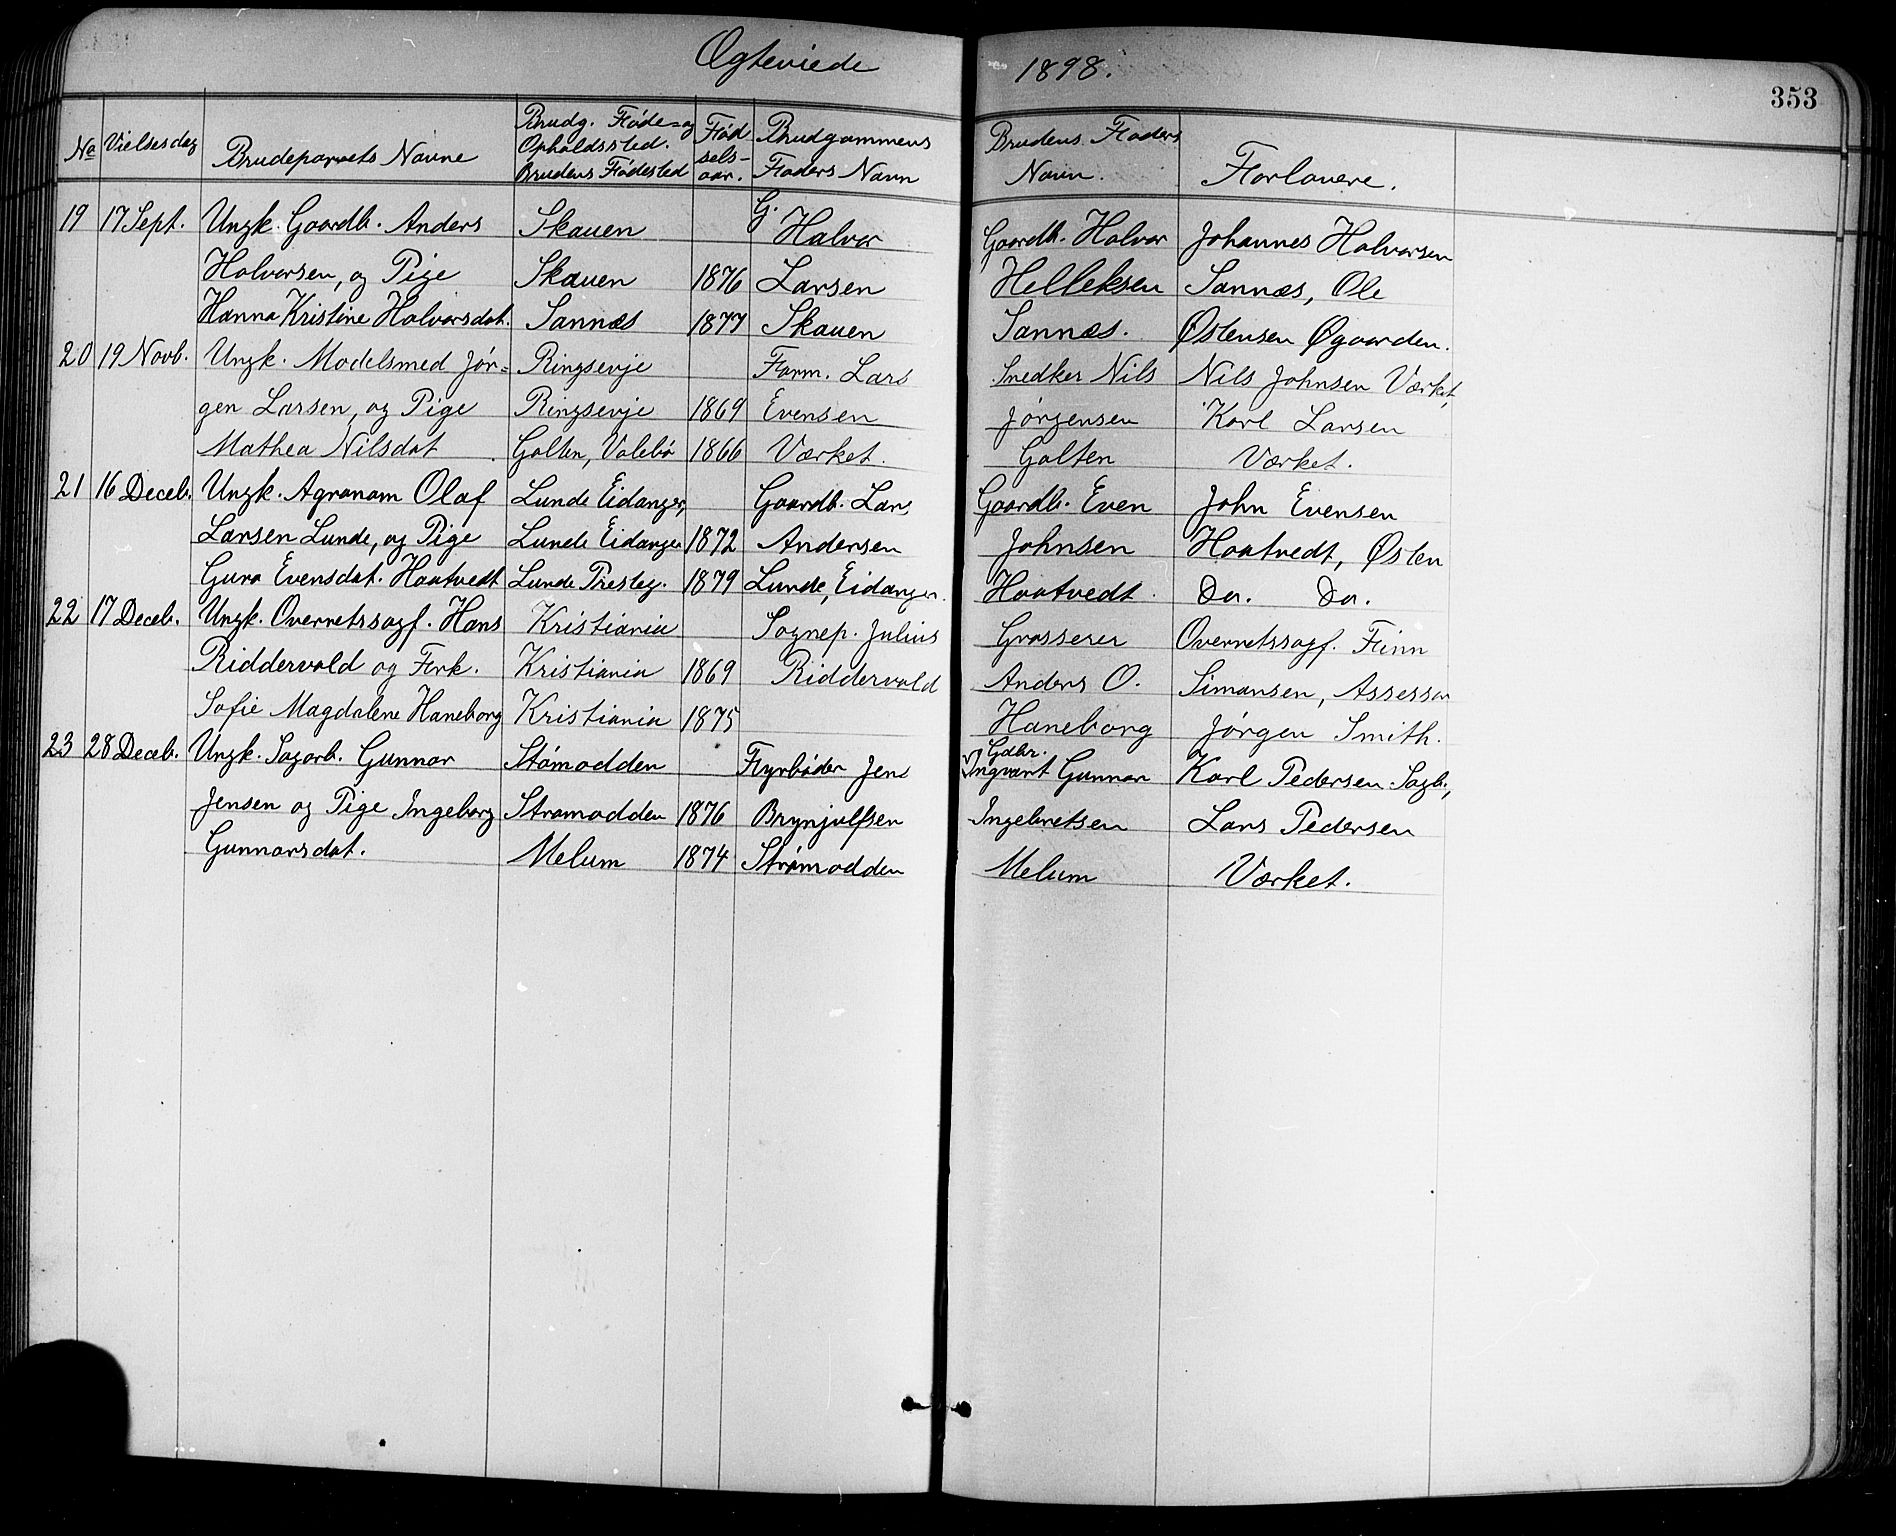 Ægteviede 1898.
353
No Vielsesdag Brudeparrets Navne Brudg. Føde- og Opholdssted. Brudens Fødested Fødselsaar. Brudgommens Faders Navn Brudens Faders Navn. Forlovere.
19 17 Sept. Ungk. Gaardb. Anders Skauen G. Halvor Gaardb. Halvor Johannes Halvorsen
Halvorsen, og Pige Skauen 1876 Larsen Helleksen Sannæs, Ole
Hanna Kristine Halvorsdat. Sannæs 1877 Skauen Sannæs. Østensen Øgaarden.
20 19 Novb. Ungk. Modelsmed Jør= Ringsevje Form. Lars Snedker Nils Nils Johnsen Værket,
gen Larsen, og Pige Ringsevje 1869 Evensen Jørgensen Karl Larsen
Mathea Nilsdat Golten, Valebø 1866 Værket. Golten Værket.
21 16 Deceb. Ungk. Agronom Olaf Lunde Eidanger, Gaardb. Lars Gaardb. Even John Evensen
Larsen Lunde, og Pige Lunde Eidanger 1872 Andersen Johnsen Haatvedt, Østen
Guro Evensdat. Haatvedt Lunde Presteg. 1879 Lunde, Eidanger. Haatvedt. Do. Do.
22 17 Deceb. Ungk. Overretssagf. Hans Kristiania Sognep. Julius Grosserer Overretssagf. Finn
Riddervold og Frk. Kristiania 1869 Riddervold Anders O. Simonsen, Assessor
Sofie Magdalene Haneborg Kristiania 1875 Haneborg Jørgen Smith.
23 28 Deceb. Ungk. Sagarb. Gunnar Stømodden Fyrbøder Jens Gdbr. Ingvart Gunnar Karl Pedersen Sagb.,
Jensen og Pige Ingeborg Strømodden 1876 Brynjulfsen Ingebretsen Lars Pedersen
Gunnarsdat. Melum 1874 Strømodden Melum Værket.